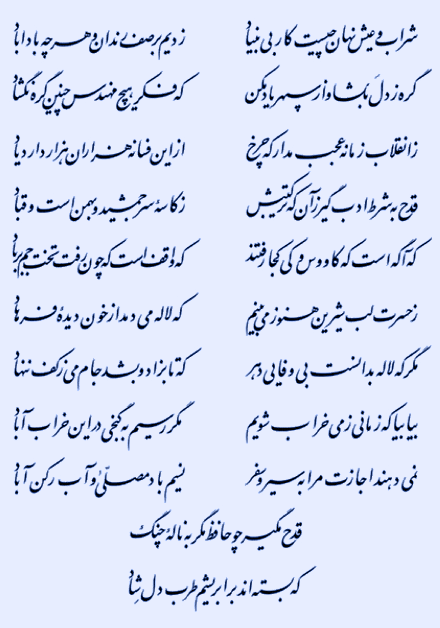 شراب و عیش نهان چیست کار بی بنیاد زدیم بر صف رندان و هر چه بادا باد
گره ز دل بگشا و از سپهر یاد مکن که فکر هیچ مهندس چنین گره نگشاد
ز انقلاب زمانه عجب مدار که چرخ از این فسانه هزاران هزار دارد یاد
قدح به شرط ادب گیر زان که ترکیبش ز کاسه سر جمشید و بهمن است و قباد
که آگه است که کاووس و کی کجا رفتند که واقف است که چون رفت تخت جم بر باد
ز حسرت لب شیرین هنوز می بینم که لاله می دمد از خون دیده فرهاد
مگر که لاله بدانست بی وفایی دهر که تا بزاد و بشد جام می ز کف ننهاد
بیا بیا که زمانی ز می خراب شویم مگر رسیم به گنجی در این خراب آباد
نمی دهند اجازت مرا به سیر و سفر نسیم باد مصلی و آب رکن آباد
قدح مگیر چو حافظ مگر به ناله چنگ
که بسته اند بر ابریشم طرب دل شاد